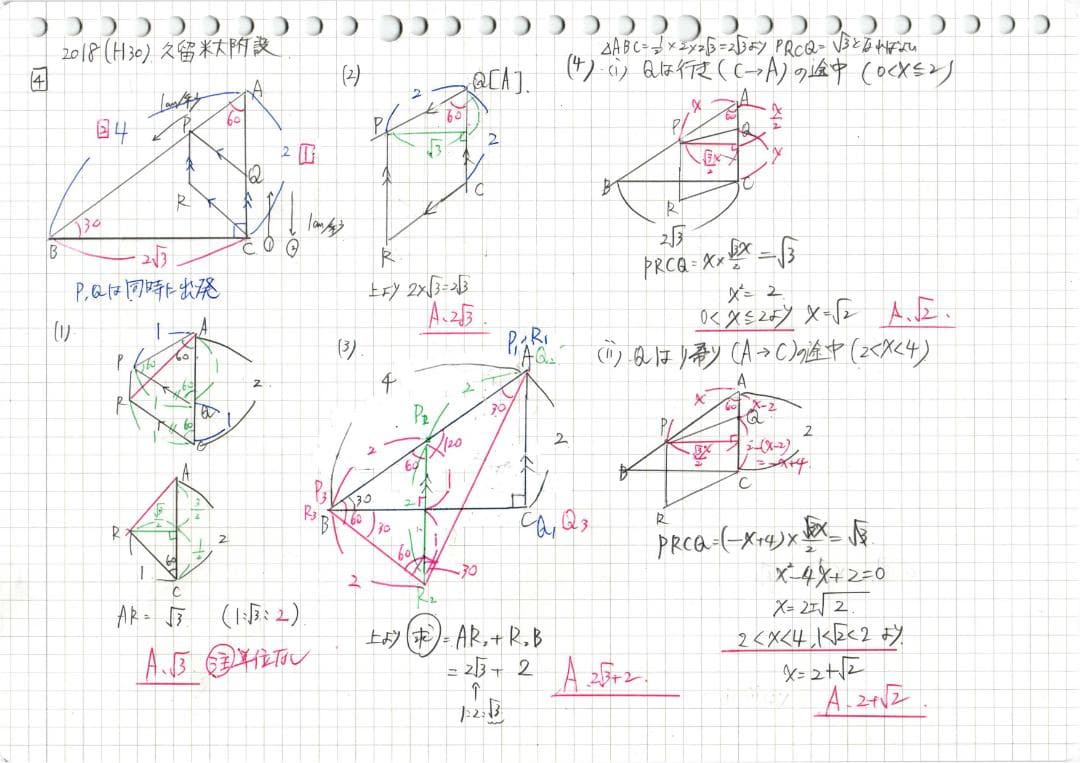 2018 (H30) 久留米大附設
4
1cm/秒
A
P
60
② 4
2 ①
Q
R
30
B
C
2√3
① ②
1cm/秒
P,Qは同時に出発
(1)
1
A
P
60
60
1
2
R
1
60
60
Q
1
1
C
A
√3/2
3/2
R
1/2
2
1
60
C
AR = √3 (1:√3:2)
A. √3 注 単位なし
(2)
2
Q[A].
60
P
√3
2
C
R
上より 2×√3=2√3
A. 2√3
(3).
P₁, R₁
A Q₂
4
2
30
P₂
2
120
60
2
1
P₃
R₃
30
B
60
30
2
C Q₁ Q₃
60
1
30
2
R₂
上より 求 = AR₂ + R₂B
= 2√3 + 2
↑
1:2:√3
A. 2√3+2.
△ABC = 1/2 × 2 × 2√3 = 2√3より PRCQ = √3となればよい
(4) (i) Qは行き (C→A) の途中 (0<x≦2)
x
A
60
x/2
P
Q
√3/2 x
x
B
C
R
2√3
PRCQ = x × √3x/2 = √3
x² = 2
0<x≦2より x=√2 A. √2.
(ii) Qは帰り (A→C) の途中 (2<x<4)
A
x
60
x-2
Q
P
2
√3x/2
2-(x-2)
= -x+4
B
C
R
PRCQ = (-x+4) × √3x/2 = √3
x²-4x+2=0
x=2±√2
2<x<4, 1<√2<2 より
x=2+√2
A. 2+√2.